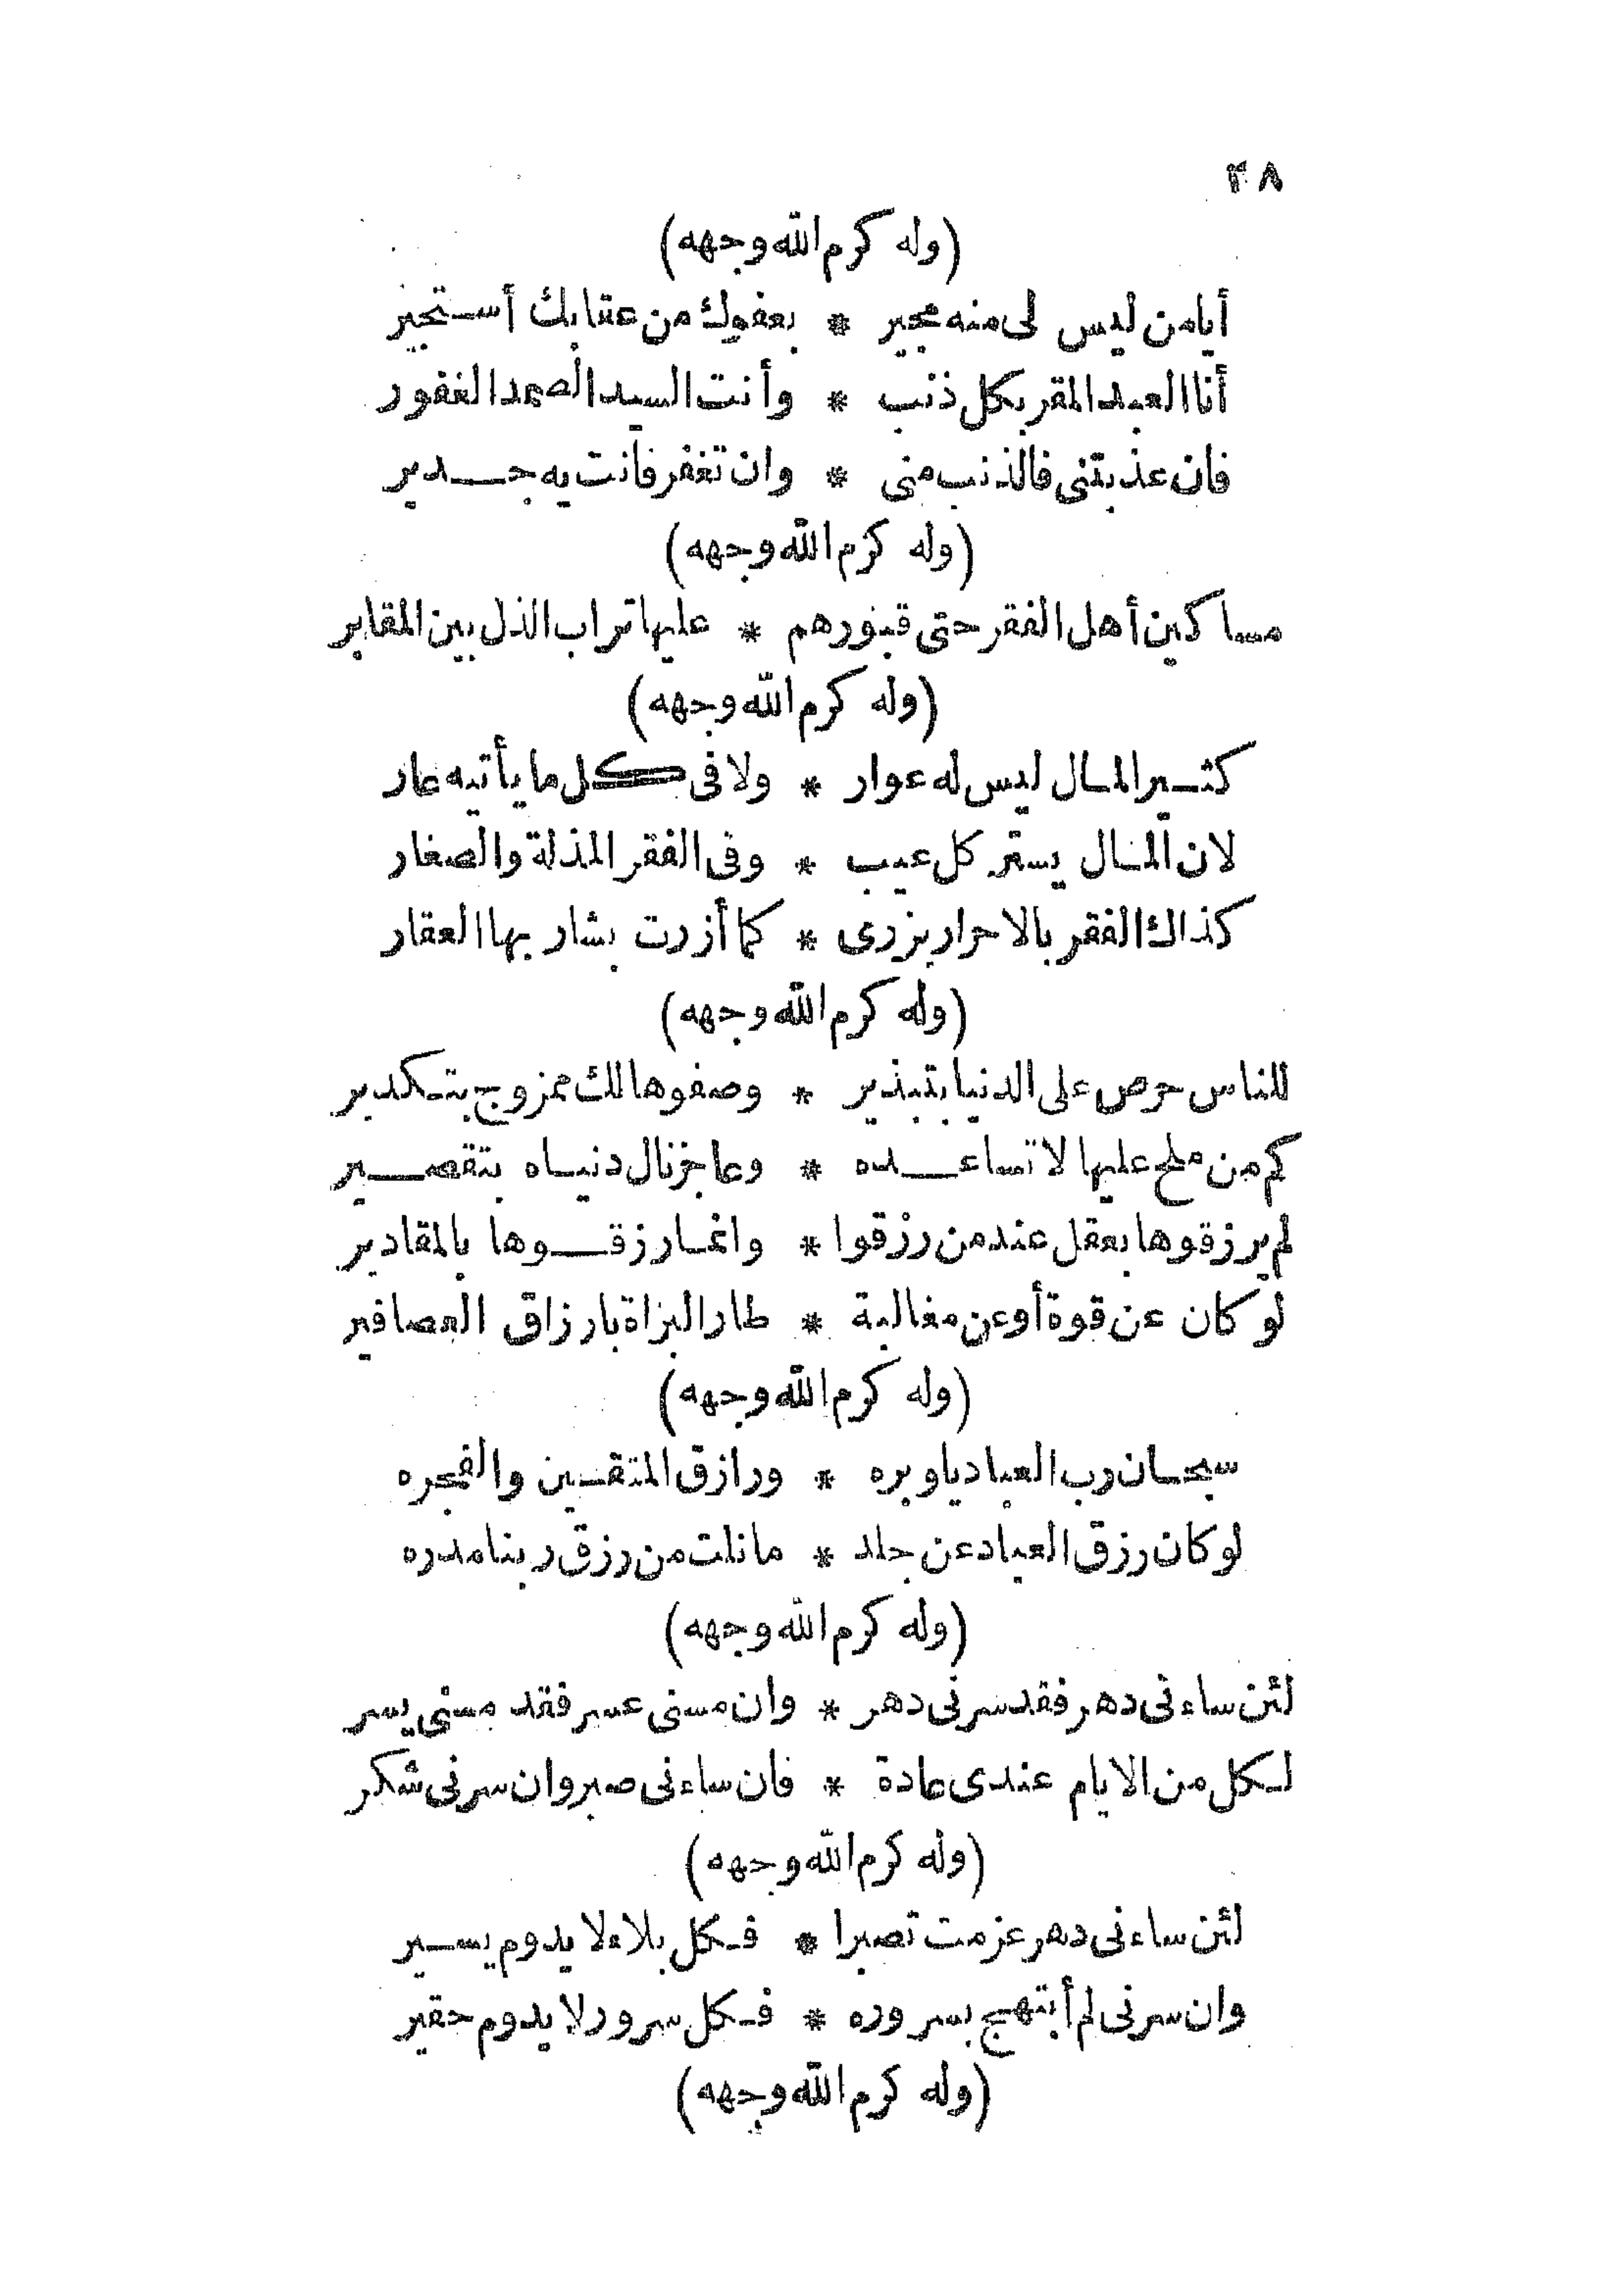 ٤٨
(وله كرم الله وجهه)
أيا من ليس لى منه مجير * بعفوك من عقابك أستجير
أنا العبد المقر بكل ذنب * وأنت السيد الصمد الغفور
فان عذبتنى فالذنب منى * وان تغفر فانت به جدير
(وله كرم الله وجهه)
مساكين أهل الفقر حتى قبورهم * عليها تراب الذل بين المقابر
(وله كرم الله وجهه)
كثير المال ليس له عوار * ولا فى كل ما يأتيه عار
لان المال يستر كل عيب * وفى الفقر المذلة والصغار
كذاك الفقر بالاحرار يزرى * كما أزرت بشار بها العقار
(وله كرم الله وجهه)
للناس حرص على الدنيا بتبذير * وصفوها لك ممزوج بتكدير
كم من ملح عليها لا تساعده * وعاجز نال دنياه بتقصير
لم يرزقوها بعقل عند من رزقوا * وانما رزقوها بالمقادير
لو كان عن قوة أو عن مغالبة * طار البزاة بارزاق العصافير
(وله كرم الله وجهه)
سبحان رب العباد يا وبره * ورازق المتقين والفجره
لو كان رزق العباد عن جلد * ما نلت من رزق ربنا مدره
(وله كرم الله وجهه)
لئن ساءنى دهر فقد سرنى دهر * وان مسنى عسر فقد مسنى يسر
لكل من الايام عندى عادة * فان ساءنى صبر وان سرنى شكر
(وله كرم الله وجهه)
لئن ساءنى دهر عزمت تصبرا * فكل بلاء لا يدوم يسير
وان سرنى لم أبتهج بسروره * فكل سرور لا يدوم حقير
(وله كرم الله وجهه)